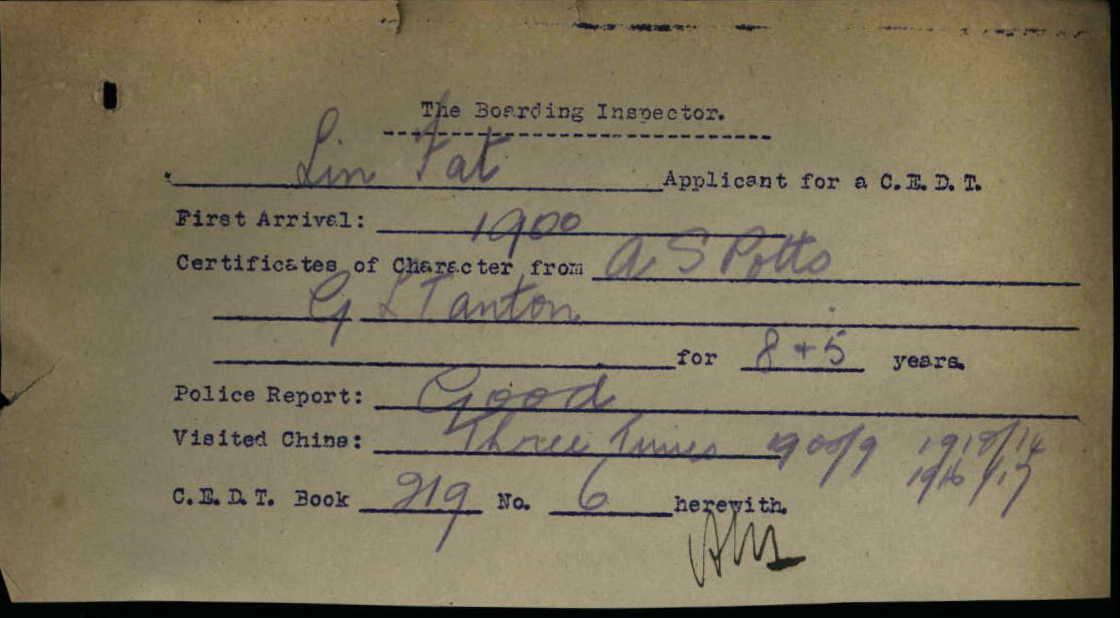 The Boarding Inspector.
Lin Fat Applicant for a C.E.D.T.
First Arrival: 1900
Certificates of Character from A S Potts
G L Tanton
for 8 + 5 years.
Police Report: Good
Visited China: Three Times
1916/17
C.E.D.T. Book 219 No. 6 herewith.